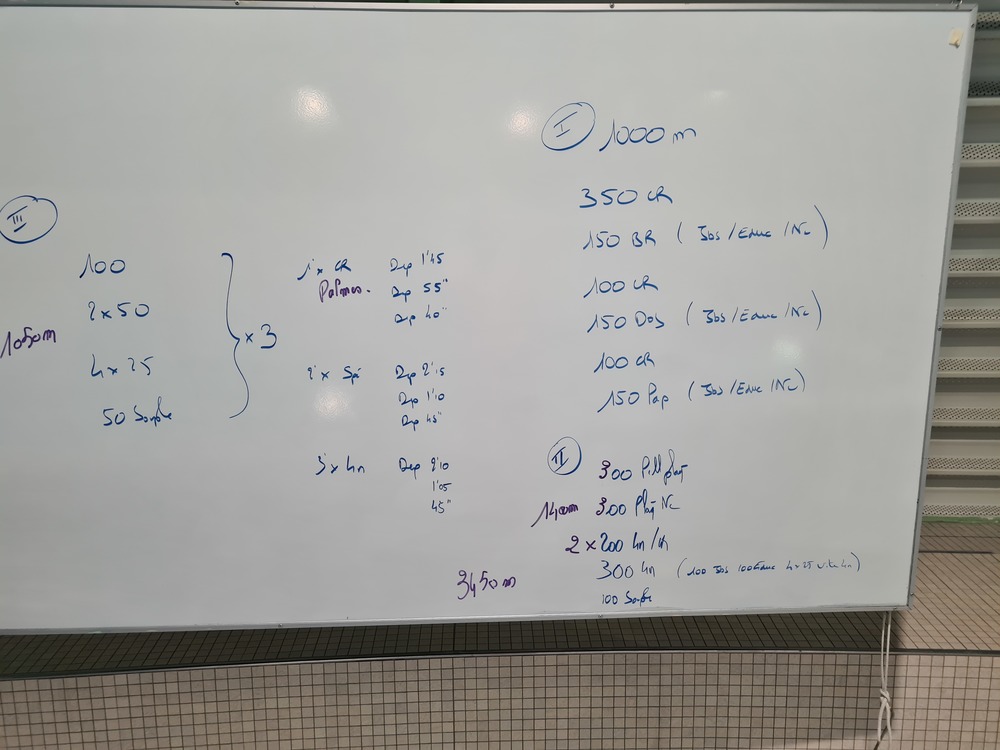 I 1000 m
350 CR
150 BR ( Jbs / Educ / NC )
100 CR
150 Dos ( Jbs / Educ / NC )
100 CR
150 Pap ( Jbs / Educ / NC )
II
300 Pull plaq
1400m 300 Plaq NC
2 x 200 4n / CR
300 4n ( 100 Jbs 100 Educ 4x25 vite 4n )
100 Souple
III
100
2 x 50
1050m
4 x 25
50 Souple
x 3
1x CR Dep 1'45
Palmes. Dep 55"
Dep 40"
2x Spé Dep 2'15
Dep 1'10
Dep 45"
3x 4n Dep 2'10
1'05
45"
3450m